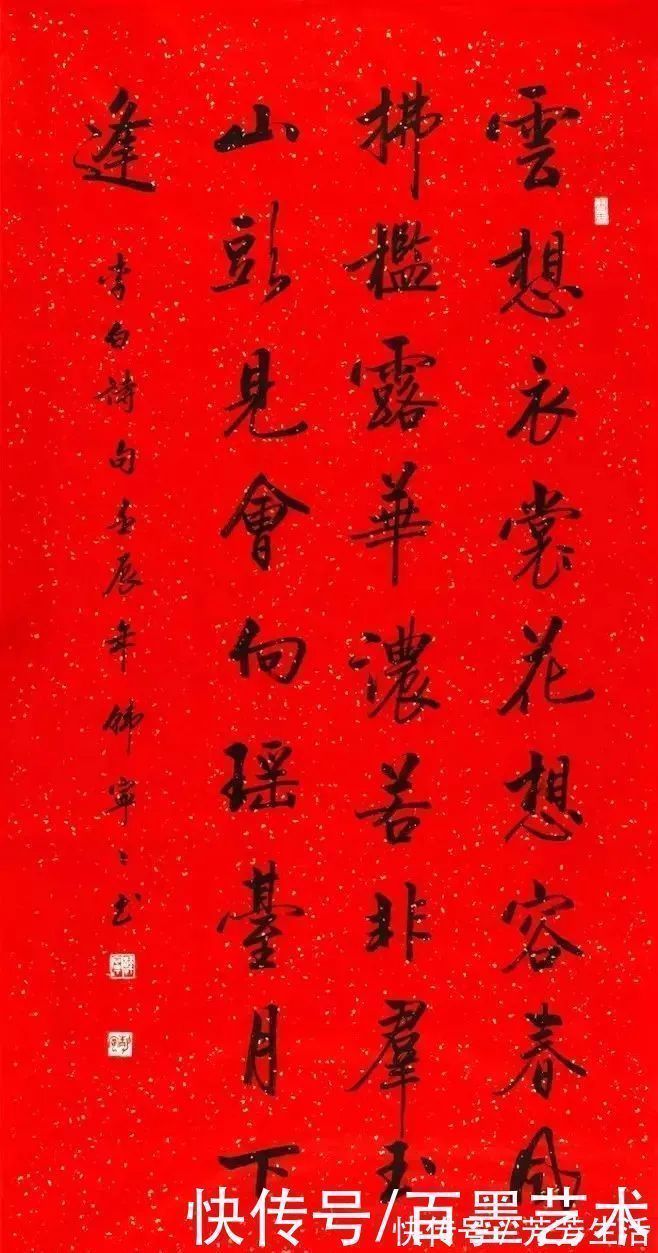 雲想衣裳花想容春风
拂檻露華濃若非羣玉
山頭見會向瑶臺月下
逢
李白詩句壬辰年韩寧々书
快传号/百墨艺术
快传号/芳芳生活